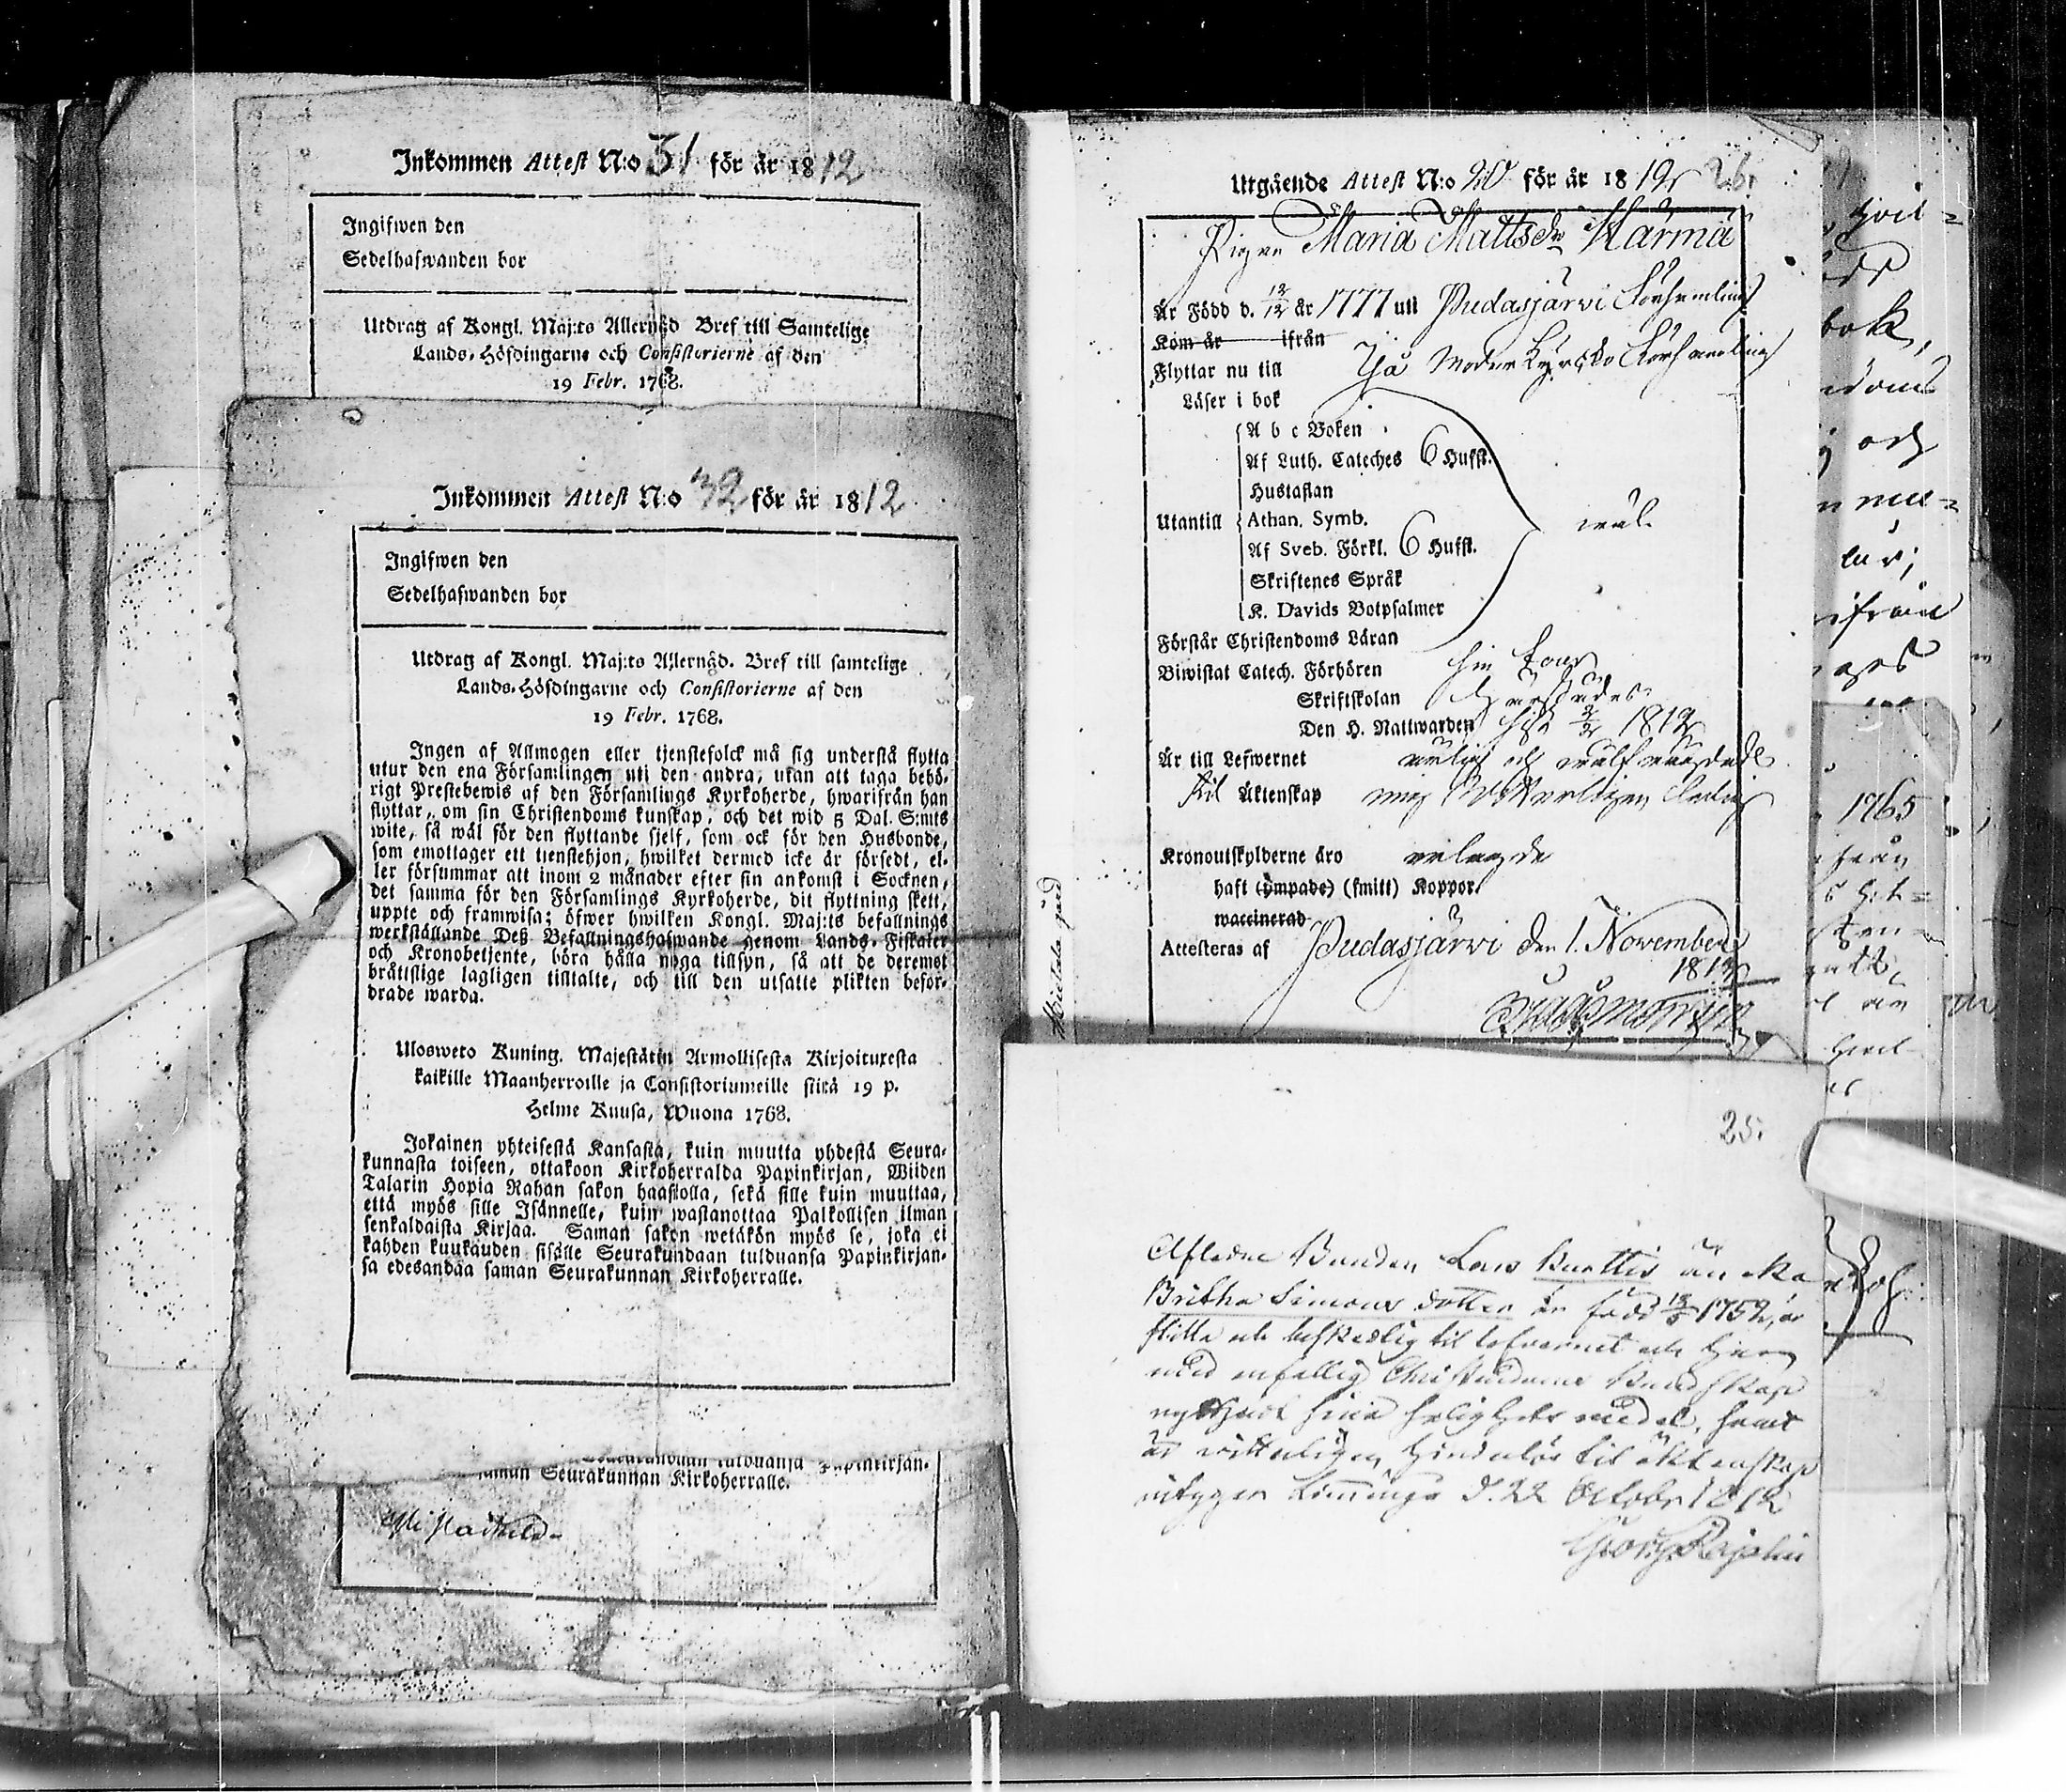 Inkommen Attest N:o 31 för år 1812
Ingifwen den
Sedelhafwanden bor
Utdrag af Kongl. Maj:ts Allernåd Bref till Samtelige
Lands-Höfdingarne och Consistorierne af den
19 Febr. 1768.
Inkommen Attest N:o 32 för år 1812
Ingifwen den
Sedelhafwanden bor
Utdrag af Kongl. Maj:ts Allernåd. Bref till samtelige
Lands-Höfdingarne och Consistorierne af den
19 Febr. 1768.
Ingen af Allmogen eller tjenstefolck må sig understå flytta
utur den ena Församlingen uti den andra, utan att taga behö-
rigt Prestebewis af den Församlings Kyrkoherde, hwarifrån han
flyttar, om sin Christendoms kunskap, och det wid 5 Dal. S:mts
wite, så wäl för den flyttande sjelf, som ock för den Husbonde,
som emottager ett tjenstehjon, hwilket dermed icke är försedt, el-
ler försummar att inom 2 månader efter sin ankomst i Socknen,
det samma för den Församlings Kyrkoherde, dit flyttning skett,
uppte och framwisa; öfwer hwilken Kongl. Maj:ts befallnings
werkställande Deß Befallningshafwande genom Lands-Fiskaler
och Kronobetjente, böra hålla noga tillsyn, så att de deremot
bråttslige lagligen tilltalte, och till den utsatte plikten befor-
drade warda.
Ulosweto Kuning. Majestätin Armollisesta Kirjoituxesta
kaikille Maanherroille ja Consistoriumeille siitä 19 p.
Helme Kuusa, Wuona 1768.
Jokainen yhteisestä Kansasta, kuin muutta yhdestä Seura-
kunnasta toiseen, ottakoon Kirkoherralda Papinkirjan, Wiiden
Talarin Hopia Rahan sakon haastolla, sekä sille kuin muuttaa,
että myös sille Isännelle, kuin wastanottaa Palkollisen ilman
senkaldaista Kirjaa. Saman sakon wetäkön myös se, joka ei
kahden kuukauden sisälle Seurakundaan tulduansa Papinkirjan-
sa edesandaa saman Seurakunnan Kirkoherralle.
tulduansa Papinkirjan-
saman Seurakunnan Kirkoherralle.
Utgående Attest N:o 20 för år 1812 26.
Pigan Maria Mattsdr Kärmä
Är Född d. 12/12 år 1777 uti Pudasjärvi Församling
Kom år ifrån
Flyttar nu till Ijå Moder Kyrcko Församling
Läser i bok
A b c Boken
Af Luth. Cateches 6 Hufst.
Hustaflan
Utantill Athan. Symb. wäl
Af Sveb. Förkl. 6 Hufst.
Skriftenes Språk
K. Davids Botpsalmer
Förstår Christendoms Läran
Biwistat Catech. Förhören
Skriftskolan
Den H. Nattwarden sist 1812
Är till Lefwernet ärlig och wälfräjdad
til Äktenskap mig witterligen ledig
Kronoutskylderne äro erlagde
haft (ympade) (smitt) Koppor
waccinerad
Attesteras af Pudasjärvi den 1. November
1812
25.
Afledne Bonden Lars Kurttis än eka
Britha Simons dotter är född 1752, är
stilla och beskedlig til lefvernet och har
med enfallig Christendoms Kundskap
nyttjadt sina salighets medel, samt
är vitterligen hinderlös til äktenskap
intygar Limingo d. 22 Octobr 1812
1765